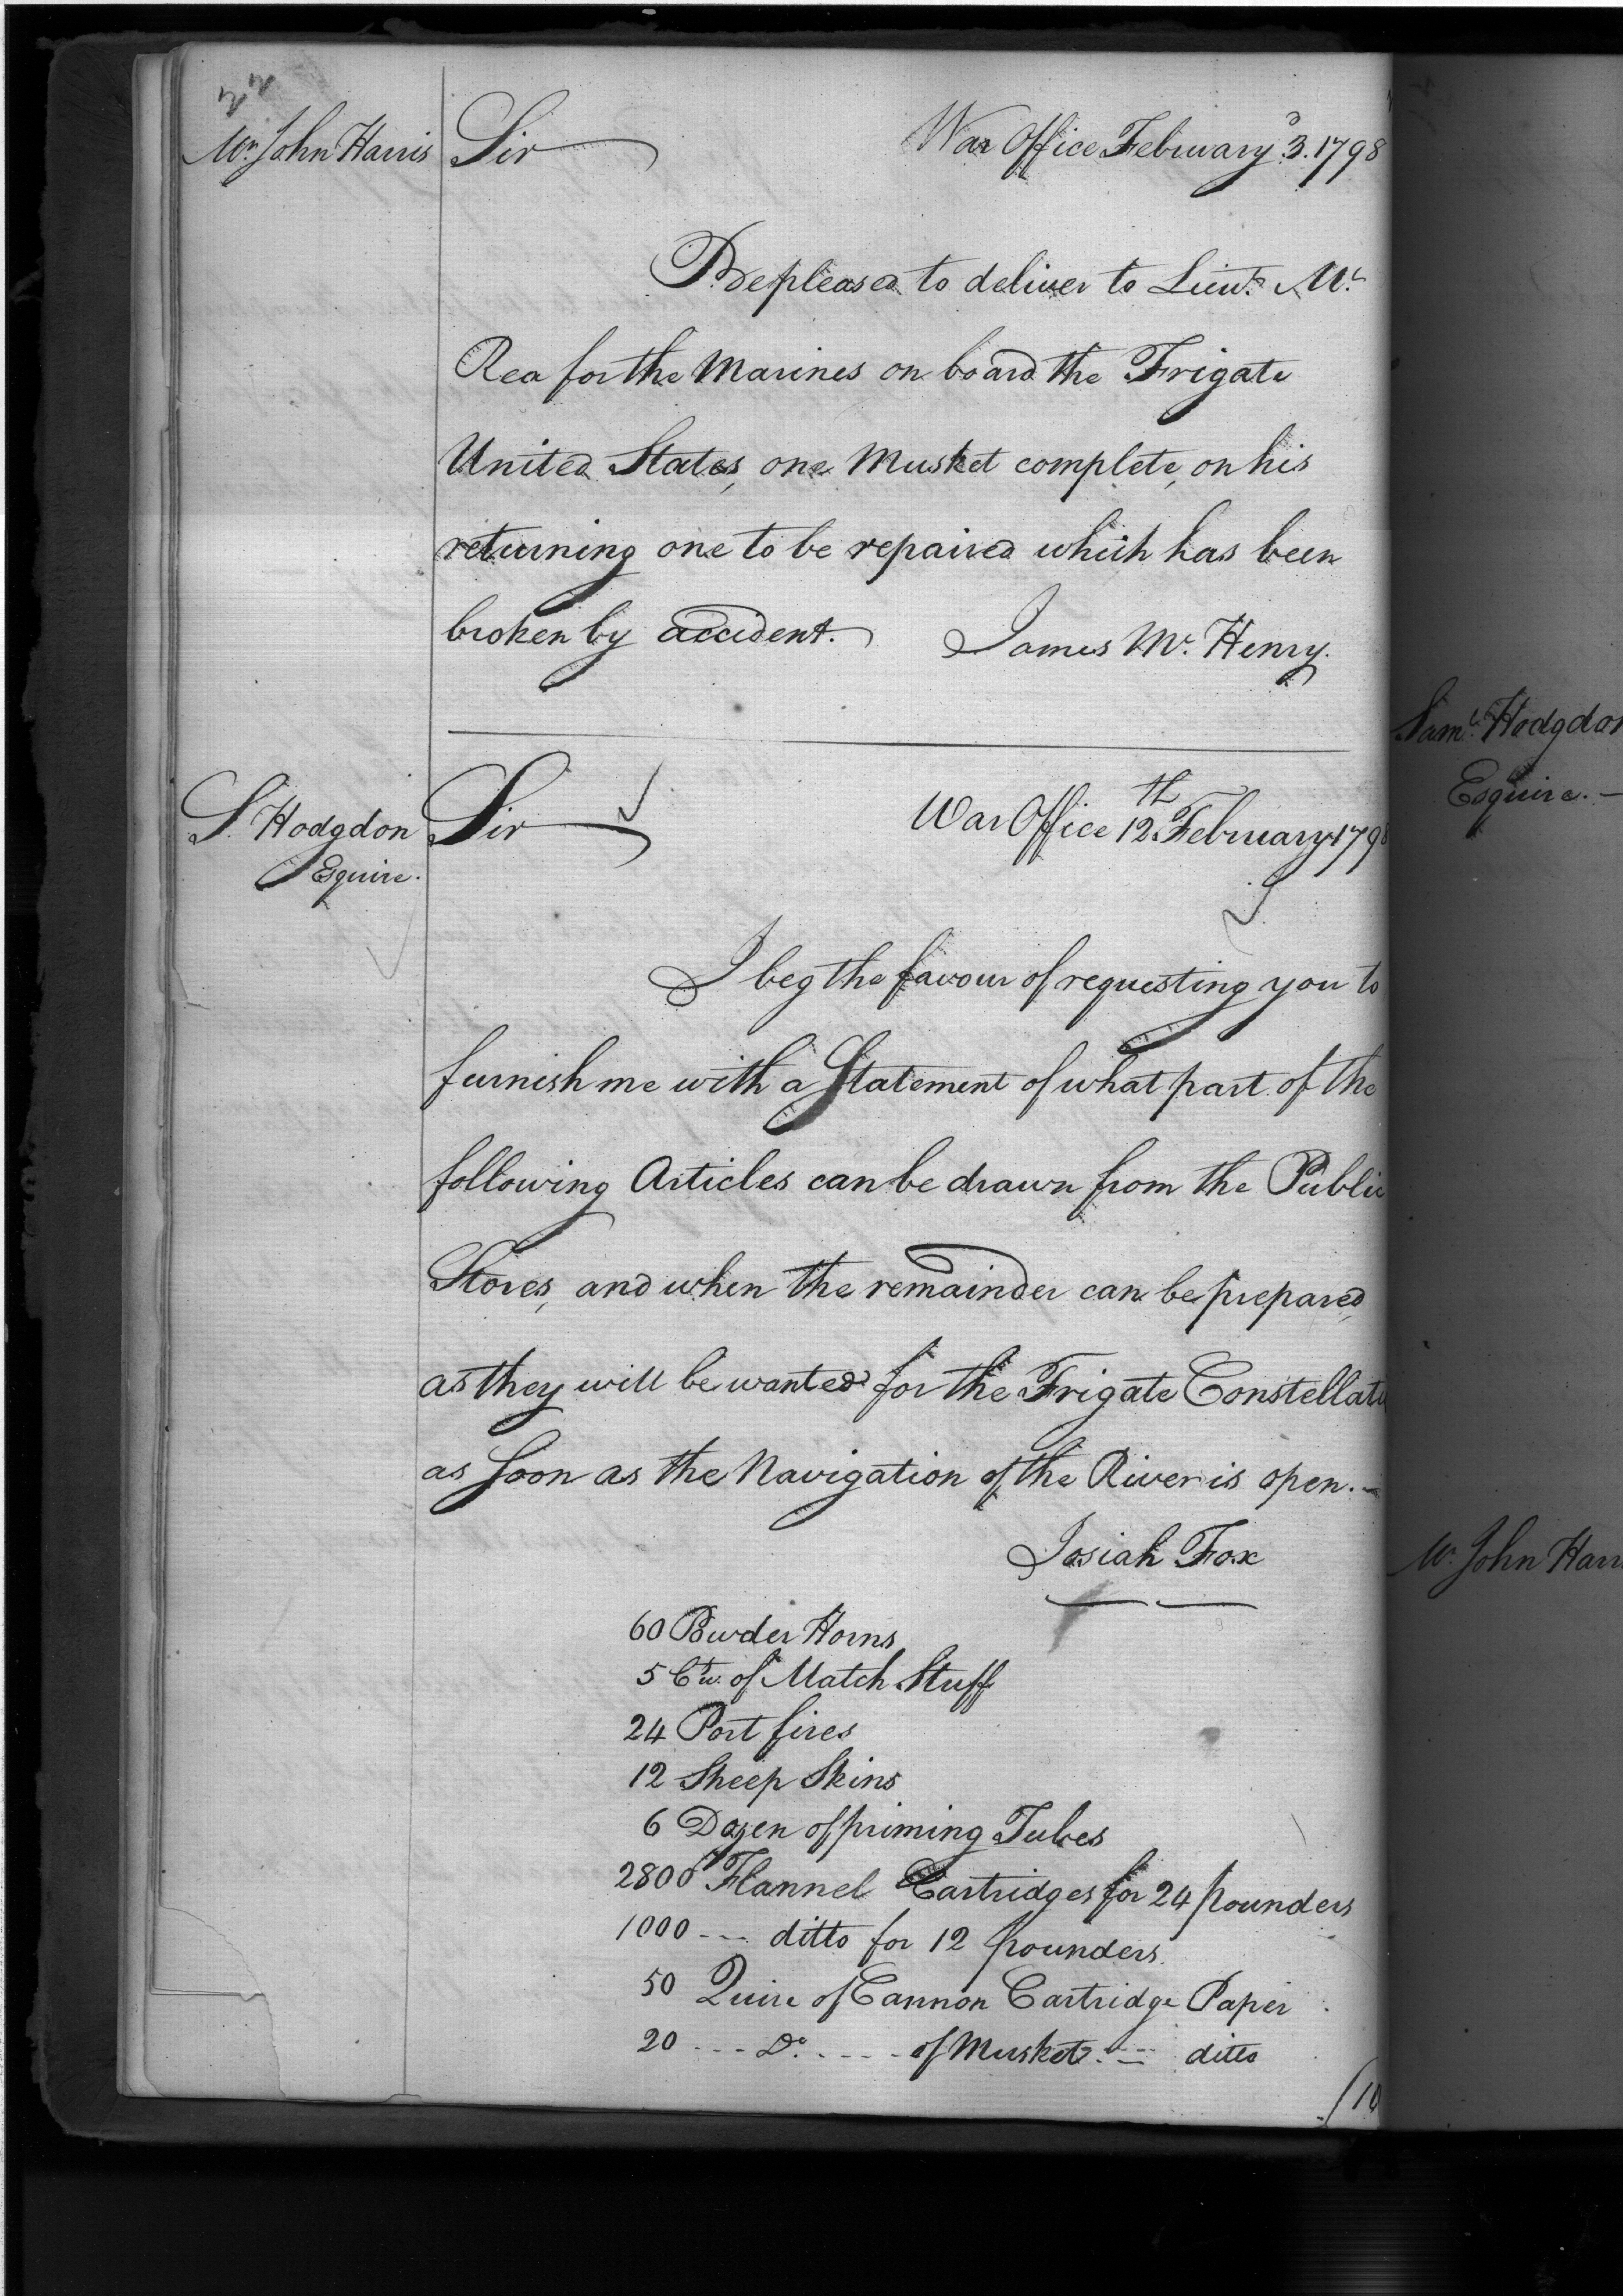 Mr. John Harris
Sir
War Office February 3d. 1798
Be pleased to deliver to Lieut. Mc.
Rea for the Marines on board the Frigate
United States, one Musket complete, on his
returning one to be repaired which has been
broken by accident.
James Mc. Henry.
S. Hodgdon
Esquire.
Sir
War Office 12th February 1798
I beg the favour of requesting you to
furnish me with a Statement of what part of the
following Articles can be drawn from the Public
Stores, and when the remainder can be prepared,
as they will be wanted for the Frigate Constellati
as soon as the Navigation of the River is open. –
Josiah Fox
60 Powder Horns
5 Ctw. of Match Stuff
24 Port fires
12 Sheep Skins
6 Dozen of priming Tubes
2800 Flannel Cartridges for 24 pounders
1000 --- ditto for 12 pounders.
50 Quire of Cannon Cartridge Paper
20 --- Do. ---- of Musket. --- ditto
(10
Saml. Hodgdon
Esquire. –
Mr. John Harr